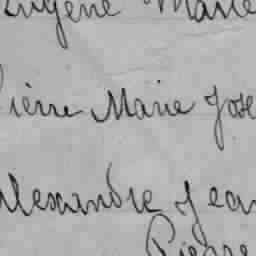 Eugène Marie
Pierre Marie Jose
Alexandre Jean
Pierre